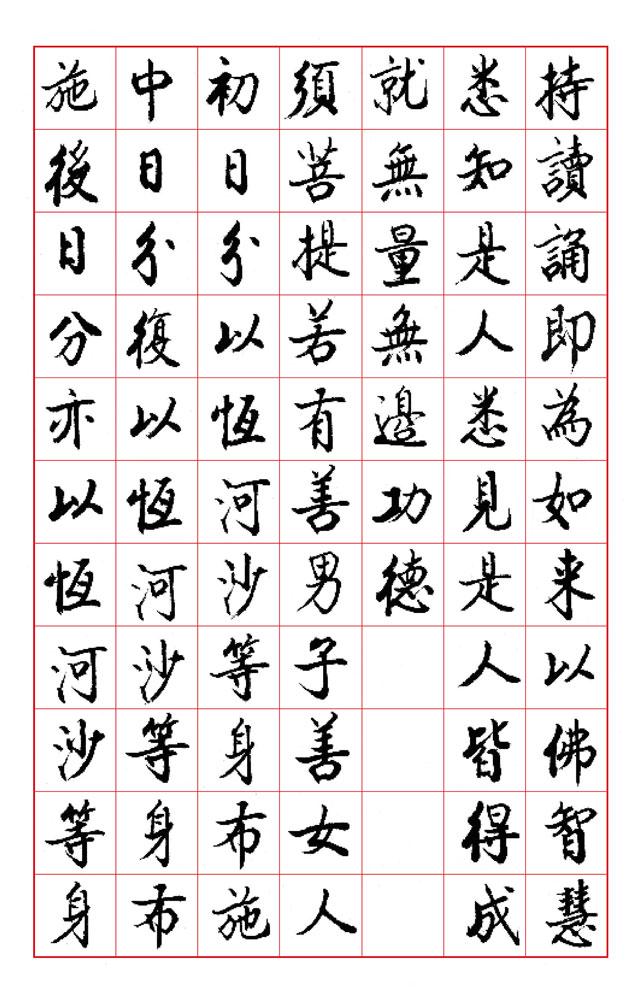 持讀誦即為如来以佛智慧
悉知是人悉見是人皆得成
就無量無邊功德
須菩提若有善男子善女人
初日分以恆河沙等身布施
中日分復以恆河沙等身布
施後日分亦以恆河沙等身